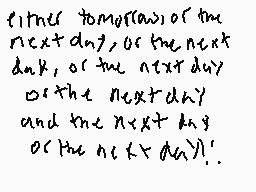 either tomorrow, or the
next day, or the next
dak, or the next day
or the next day
and the next day
or the next day!!